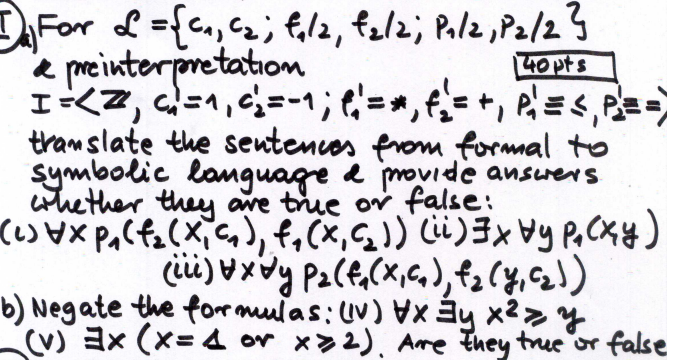 I a) For ℒ = {c₁, c₂; f₁/2, f₂/2; p₁/2, p₂/2}
& preinterpretation 40 pts
I = <ℤ, c₁ᴵ=1, c₂ᴵ=-1; f₁ᴵ=*, f₂ᴵ=+, p₁ᴵ≡≤, p₂ᴵ≡=>
translate the sentences from formal to
symbolic language & provide answers
whether they are true or false:
(i) ∀x p₁(f₂(x,c₁), f₁(x,c₂)) (ii) ∃x ∀y p₁(x,y)
(iii) ∀x∀y p₂(f₁(x,c₁), f₂(y,c₂))
b) Negate the formulas: (iv) ∀x ∃y x²⩾y
(v) ∃x (x=1 or x⩾2). Are they true or false